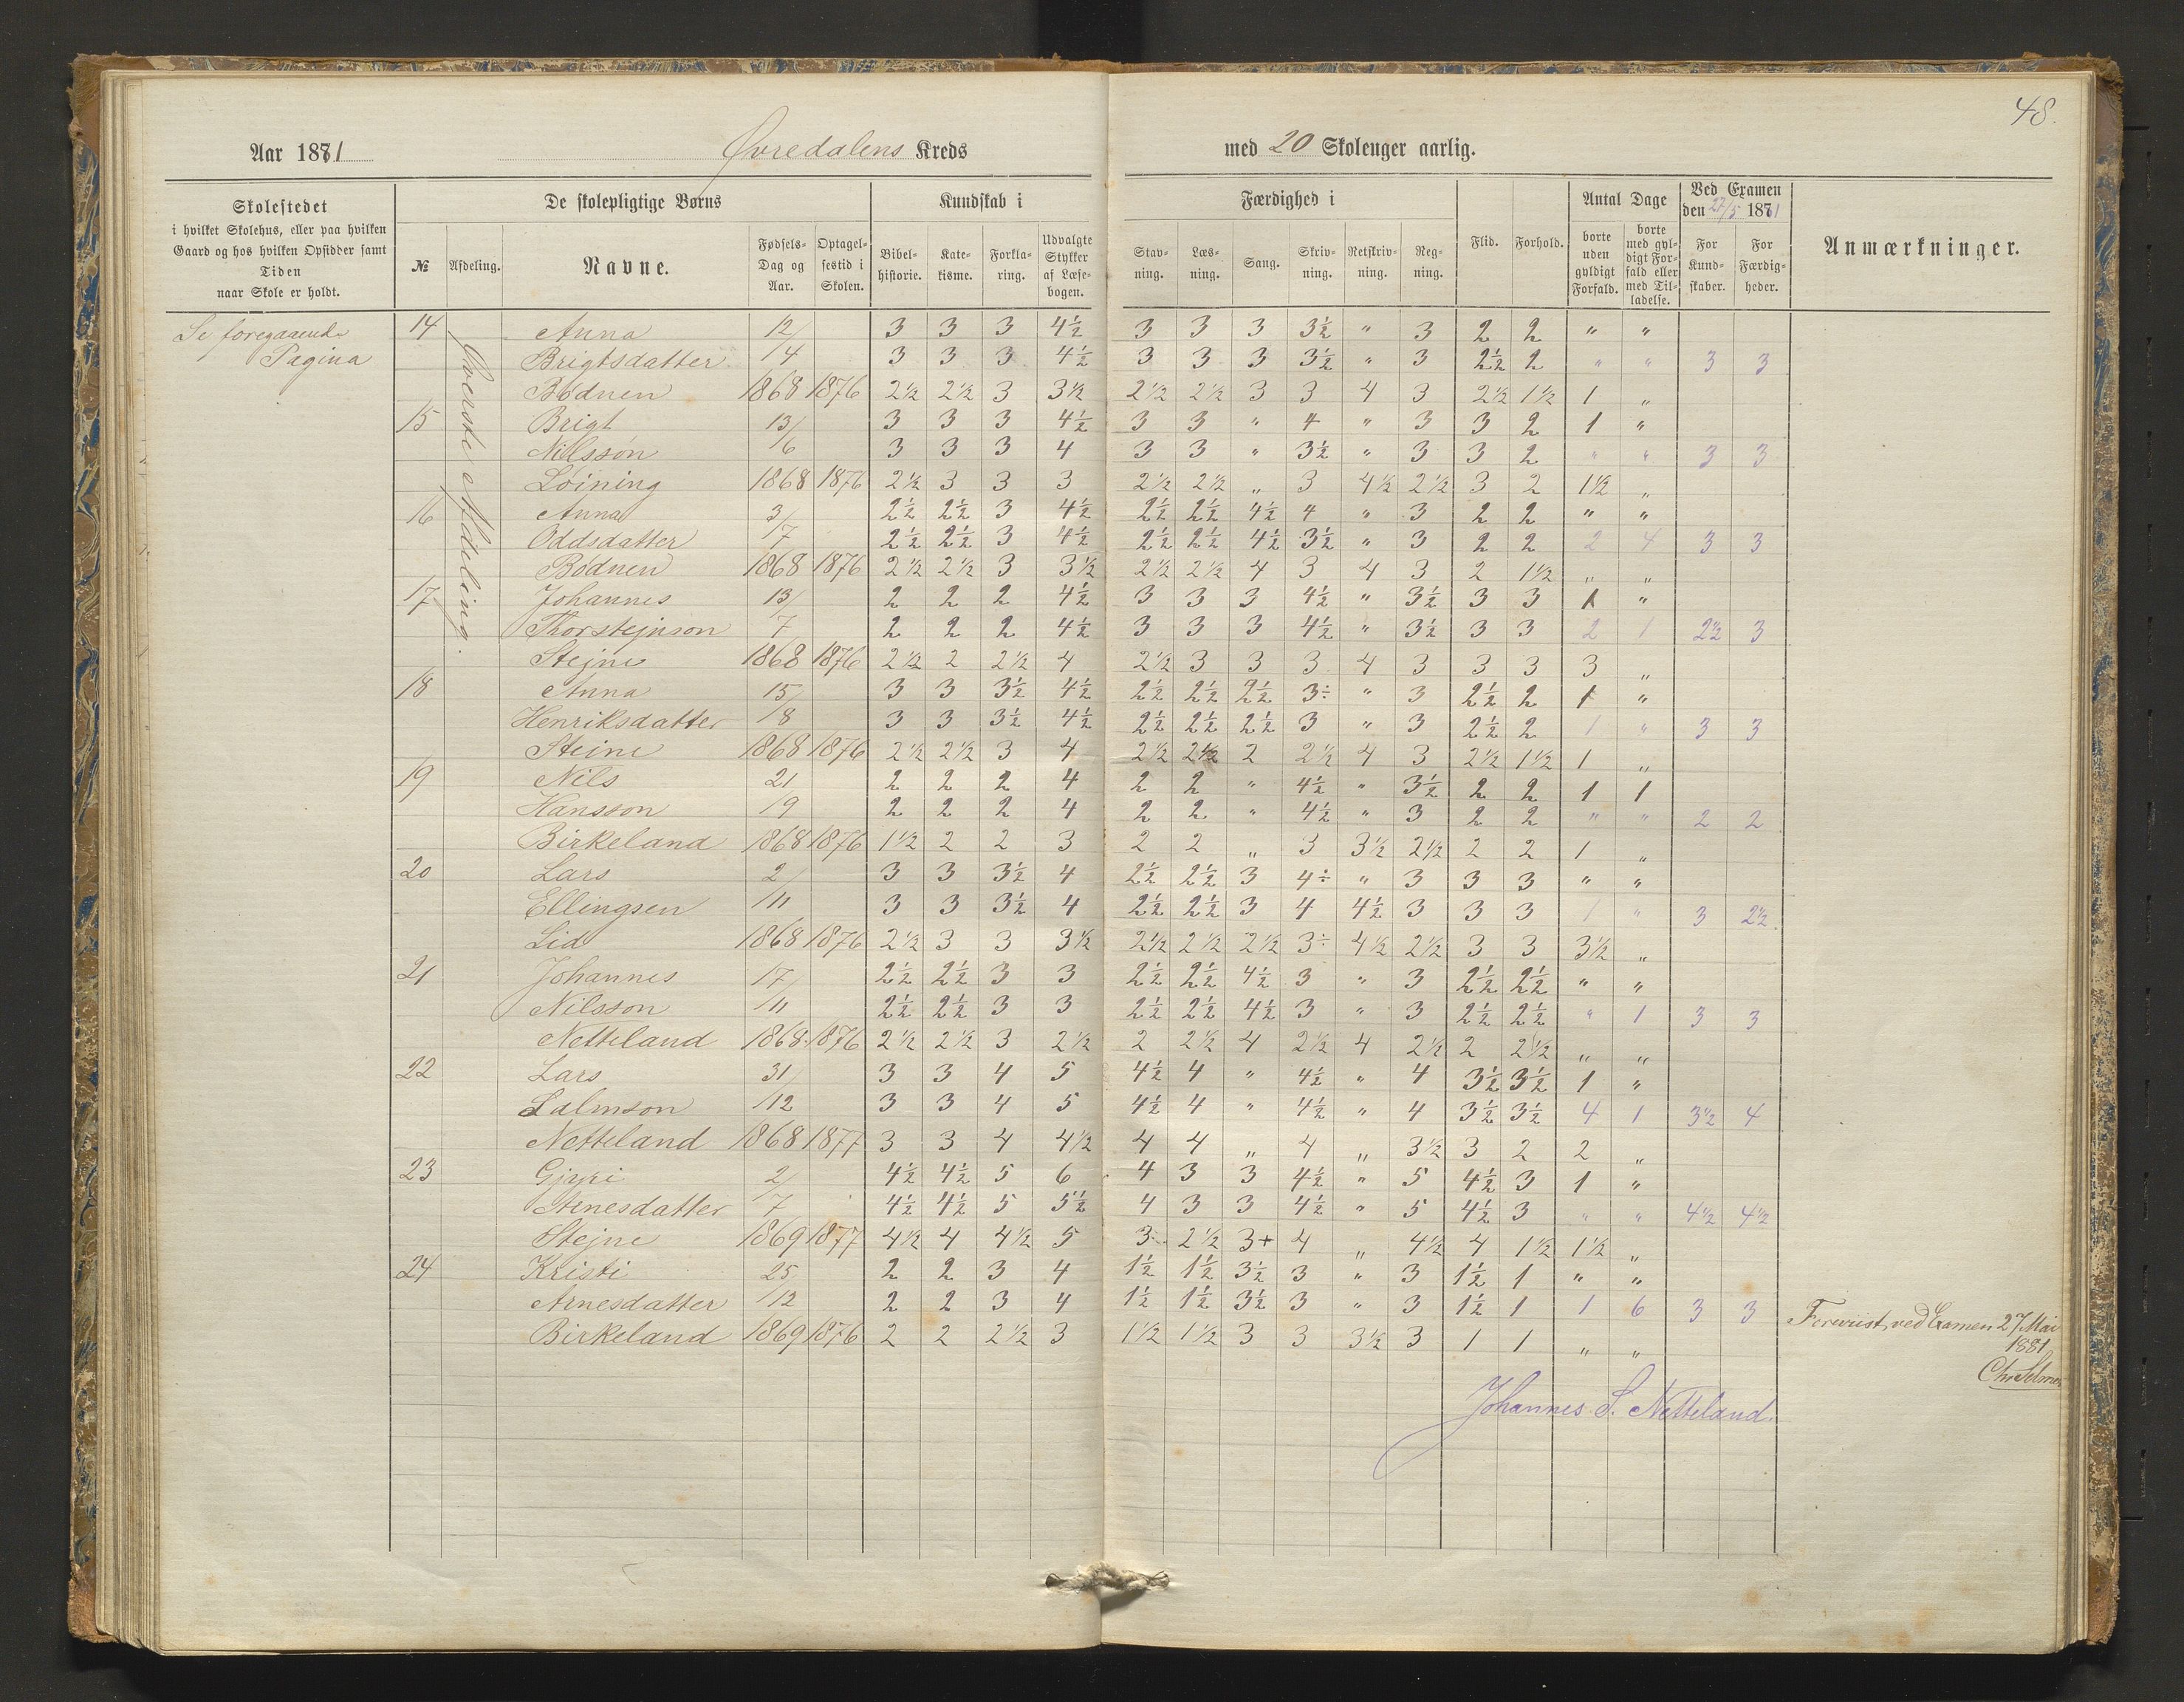 48.
Aar 1881 Øvredalens Kreds med 20 Skoleuger aarlig.
Skolestedet
i hvilket Skolehus, eller paa hvilken
Gaard og hos hvilken Opsidder samt
Tiden
naar Skole er holdt.
De skolepligtige Børns
№ Afdeling. Navne. Fødsels-Dag og Aar. Optagelsestid i Skolen.
Kundskab i
Bibelhistorie. Katekisme. Forklaring. Udvalgte Stykker af Læsebogen.
Færdighed i
Stavning. Læsning. Sang. Skrivning. Retskrivning. Regning.
Flid. Forhold.
Antal Dage
borte uden gyldigt Forfald. borte med gyldigt Forfald eller med Tilladelse.
Ved Examen den 27/5 1881
For Kundskaber. For Færdigheder.
Anmærkninger.
Se foregaaende
Pagina
Øverste Afdeling.
14 Anna 12/ 3 3 3 4½ 3 3 3 3½ " 3 2 2 " "
Brigtsdatter /4 3 3 3 4½ 3 3 3 3½ " 3 2½ 2 " " 3 3
Bødnen 1868 1876 2½ 2½ 3 3½ 2½ 2½ 3 3 4 3 2½ 1½ 1 "
15 Brigt 13/ 3 3 3 4½ 3 3 " 4 " 3 3 2 1 "
Nilsson /6 3 3 3 4 3 3 " 3½ " 3 3 2 " " 3 3
Løining 1868 1876 2½ 3 3 3 2½ 2½ " 3 4½ 2½ 3 2 1½ "
16 Anna 3/ 2½ 2½ 3 4½ 2½ 2½ 4½ 4 " 3 2 2 " "
Oddsdatter /7 2½ 2½ 3 4½ 2½ 2½ 4½ 3½ " 3 2 2 2 4 3 3
Bødnen 1868 1876 2½ 2½ 3 3½ 2½ 2½ 4 3 4 3 2 1½ " "
17 Johannes 13/ 2 2 2 4½ 3 3 3 4½ " 3½ 3 3 1 "
Thorstejnson /7 2 2 2 4½ 3 3 3 4½ " 3½ 3 3 2 1 2½ 3
Stejne 1868 1876 2½ 2 2½ 4 2½ 3 3 3 4 3 3 3 3 "
18 Anna 15/ 3 3 3½ 4½ 2½ 2½ 2½ 3÷ " 3 2½ 2 1 "
Henriksdatter /8 3 3 3½ 4½ 2½ 2½ 2½ 3 " 3 2½ 2 1 " 3 3
Steine 1868 1876 2½ 2½ 3 4 2½ 2½ 2 2½ 4 3 2½ 1½ 1 "
19 Nils 21/ 2 2 2 4 2 2 " 4½ " 3½ 2 2 1 1
Hansson /9 2 2 2 4 2 2 " 4½ " 3 2 2 " " 2 2
Birkeland 1868 1876 1½ 2 2 3 2 2 " 3 3½ 2½ 2 2 1 "
20 Lars 2/ 3 3 3½ 4 2½ 2½ 3 4÷ " 3 3 3 " "
Ellingsen /11 3 3 3½ 4 2½ 2½ 3 4 4½ 3 3 3 1 " 3 2½
Lid 1868 1876 2½ 3 3 3½ 2½ 2½ 2½ 3÷ 4½ 2½ 3 3 3½ "
21 Johannes 17/ 2½ 2½ 3 3 2½ 2½ 4½ 3 " 3 2½ 2½ " "
Nilsson /11 2½ 2½ 3 3 2½ 2½ 4½ 3 " 3 2½ 2½ " 1 3 3
Netteland 1868 1876 2½ 2½ 3 2½ 2 2½ 4 2½ 4 2½ 2 2½ " "
22 Lars 31/ 3 3 4 5 4½ 4 " 4½ " 4 3½ 3½ 1 "
Salmson /12 3 3 4 5 4½ 4 " 4½ " 4 3½ 3½ 4 1 3½ 4
Netteland 1868 1877 3 3 4 4½ 4 4 " 4 " 3½ 3 2 2 "
23 Gjøri 2/ 4½ 4½ 5 6 4 3 3 4½ " 5 4½ 3 1 "
Arnesdatter /7 4½ 4½ 5 5½ 4 3 3 4½ " 5 4½ 3 " " 4½ 4½
Stejne 1869 1877 4½ 4 4½ 5 3÷ 2½ 3+ 4 " 4½ 4 1½ 1½ "
24 Kristi 25/ 2 2 3 4 1½ 1½ 3½ 3 " 3 1½ 1 " "
Arnesdatter /12 2 2 3 4 1½ 1½ 3½ 3 " 3 1½ 1 1 6 3 3
Birkeland 1869 1876 2 2 2½ 3 1½ 1½ 3 3 3½ 3 1 1 " "
Foreviist ved Examen 27 Mai
1881
Chr Selmer
Johannes S. Netteland.